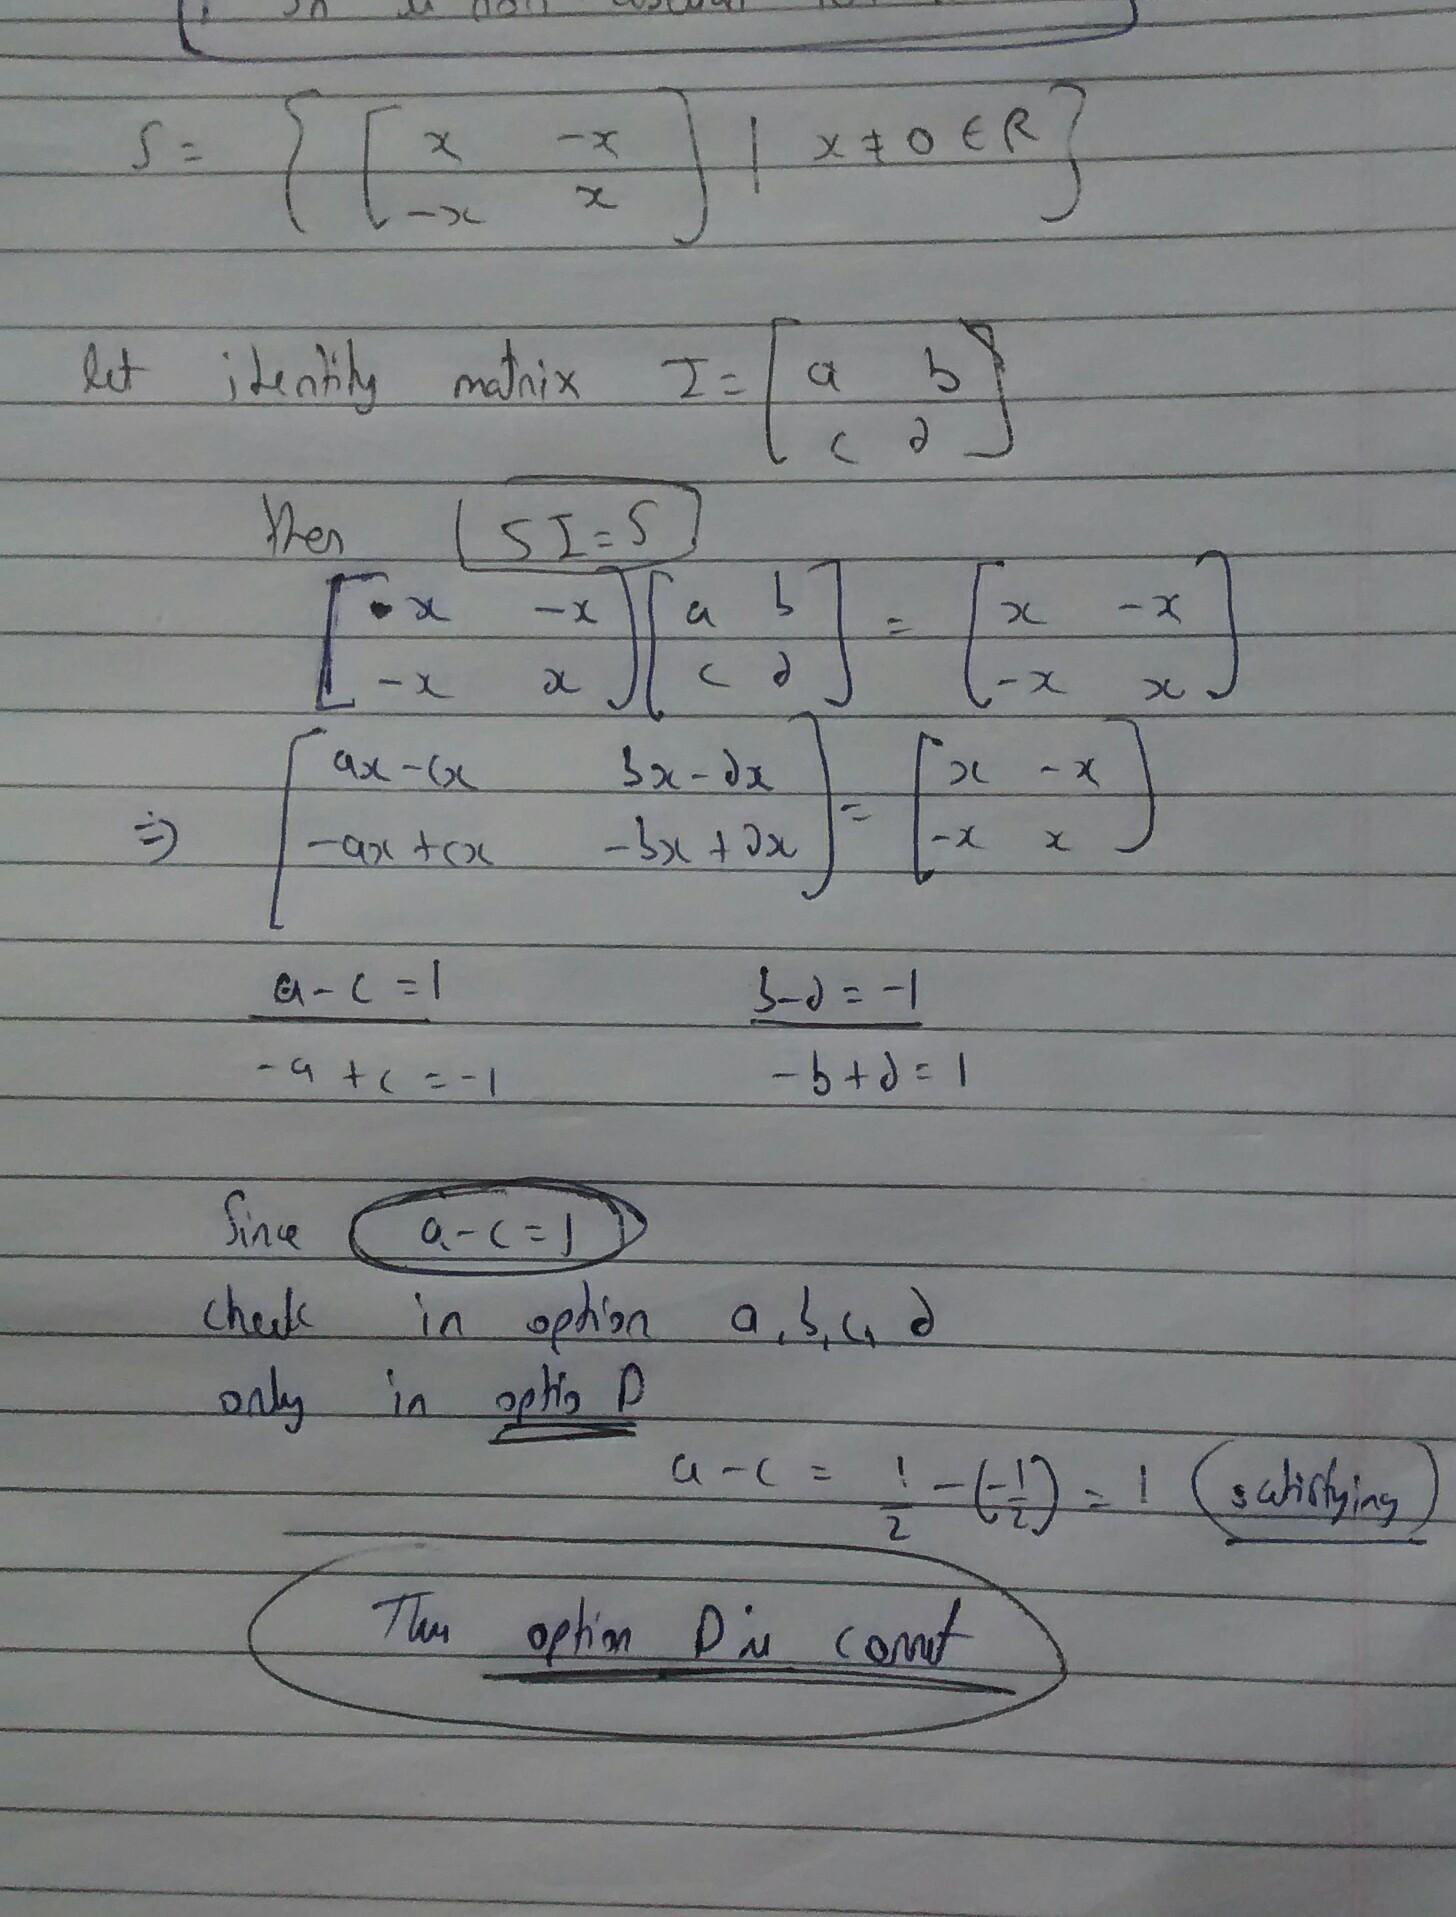 S = { [ x -x
-x x ] | x ≠ 0 ∈ R }
let identity matrix I = [ a b
c d ]
then SI = S
[ x -x ] [ a b ] = [ x -x ]
[ -x x ] [ c d ] = [ -x x ]
⇒ [ ax-cx bx-dx ] = [ x -x ]
[ -ax+cx -bx+dx ] [ -x x ]
a-c=1 b-d=-1
-a+c=-1 -b+d=1
Since a-c=1
check in option a, b, c, d
only in optio D
a-c = 1/2 - (-1/2) = 1 (satisfying)
Thus option D is correct